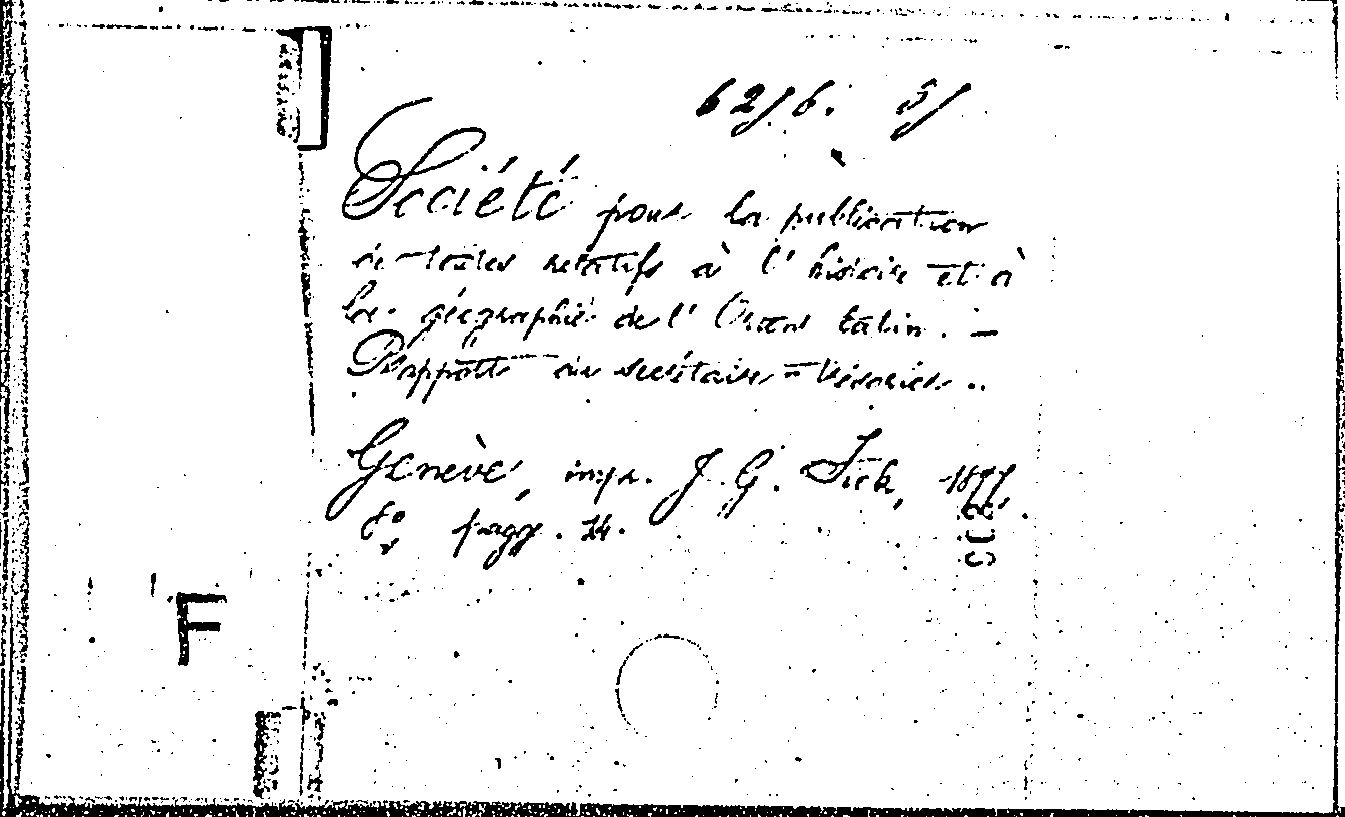 62/6. 5/
Société pour la publication
de textes relatifs à l'histoire et à
la géographie de l'Orient latin. —
Rapports du secrétaire-trésorier..
Genève, impr. J. G. Fick, 1877,
8° pagg. 24.
F